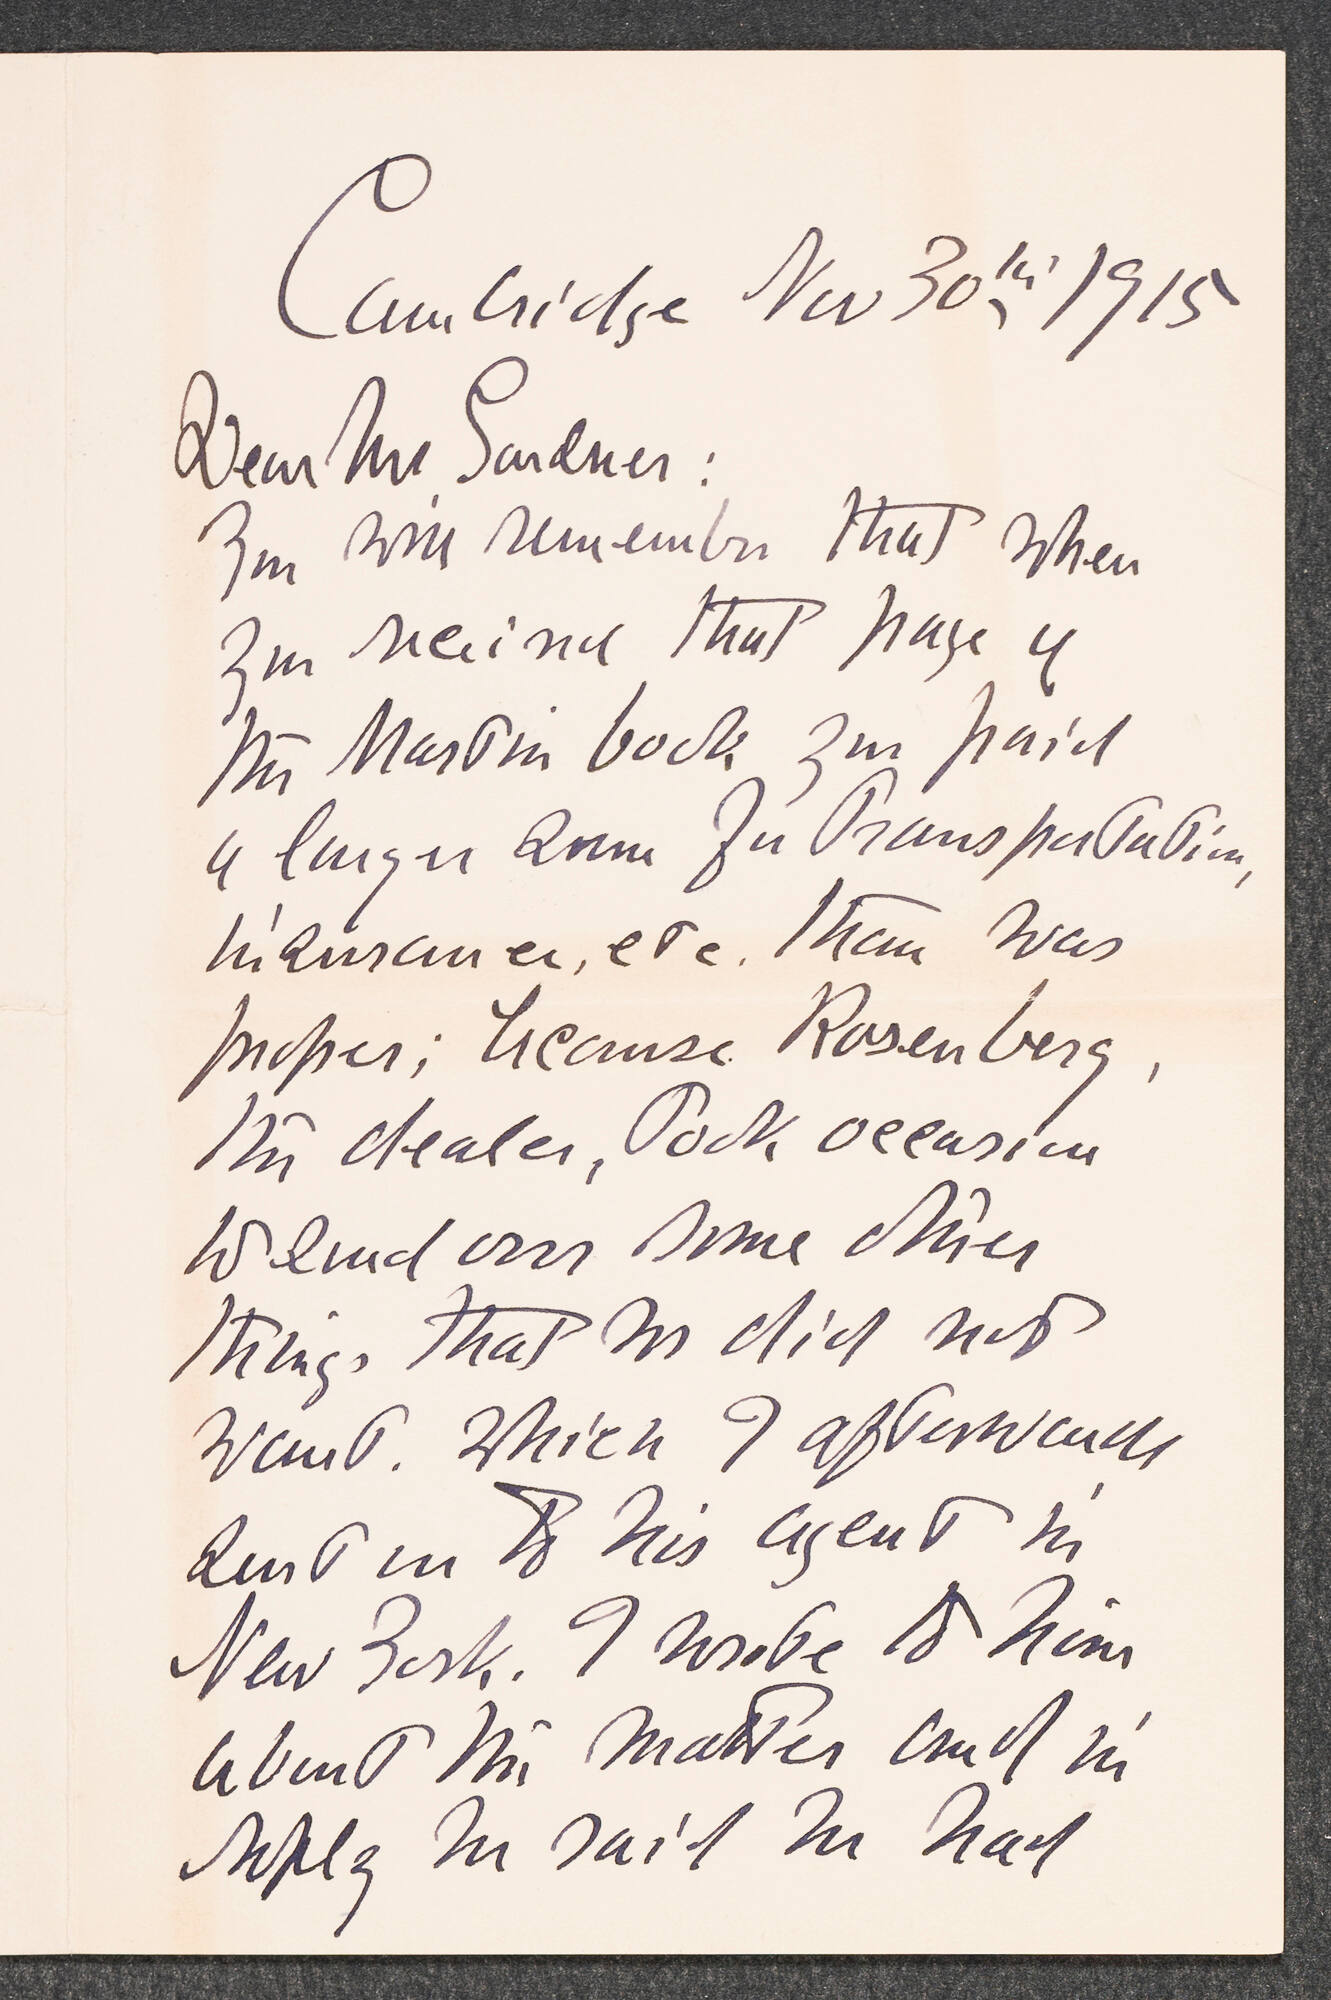 Cambridge Nov 30th 1915
Dear Mrs Gardner:
You will remember that when
you received that page of
the Martin book you paid
a larger sum for transportation,
insurance, etc. than was
proper; because Rosenberg,
the dealer, took occasion
to send over some other
things that we did not
want. which I afterwards
sent on to his agent in
New York. I wrote to him
about the matter and in
reply he said he had